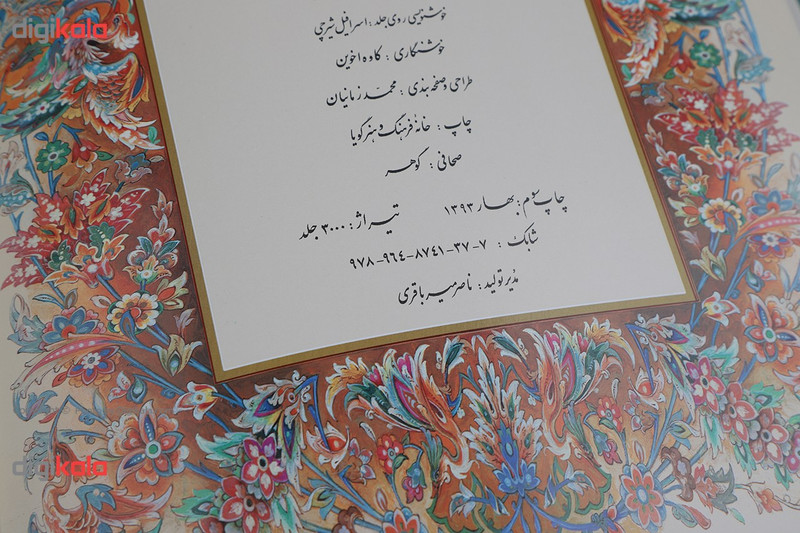 digikala
خوشنویسی روی جلد : اسرافیل شیرچی
خوشنگاری : کاوه اخوین
طراحی و صفحه بندی : محمد زمانیان
چاپ : خانهٔ فرهنگ و هنر گویا
صحافی : گوهر
چاپ سوم : بهار ۱۳۹۳ تیراژ : ۳۰۰۰ جلد
شابک : ۹۷۸-۹۶۴-۸۷۴۱-۳۷-۷
مدیر تولید : ناصر میر باقری
digikala